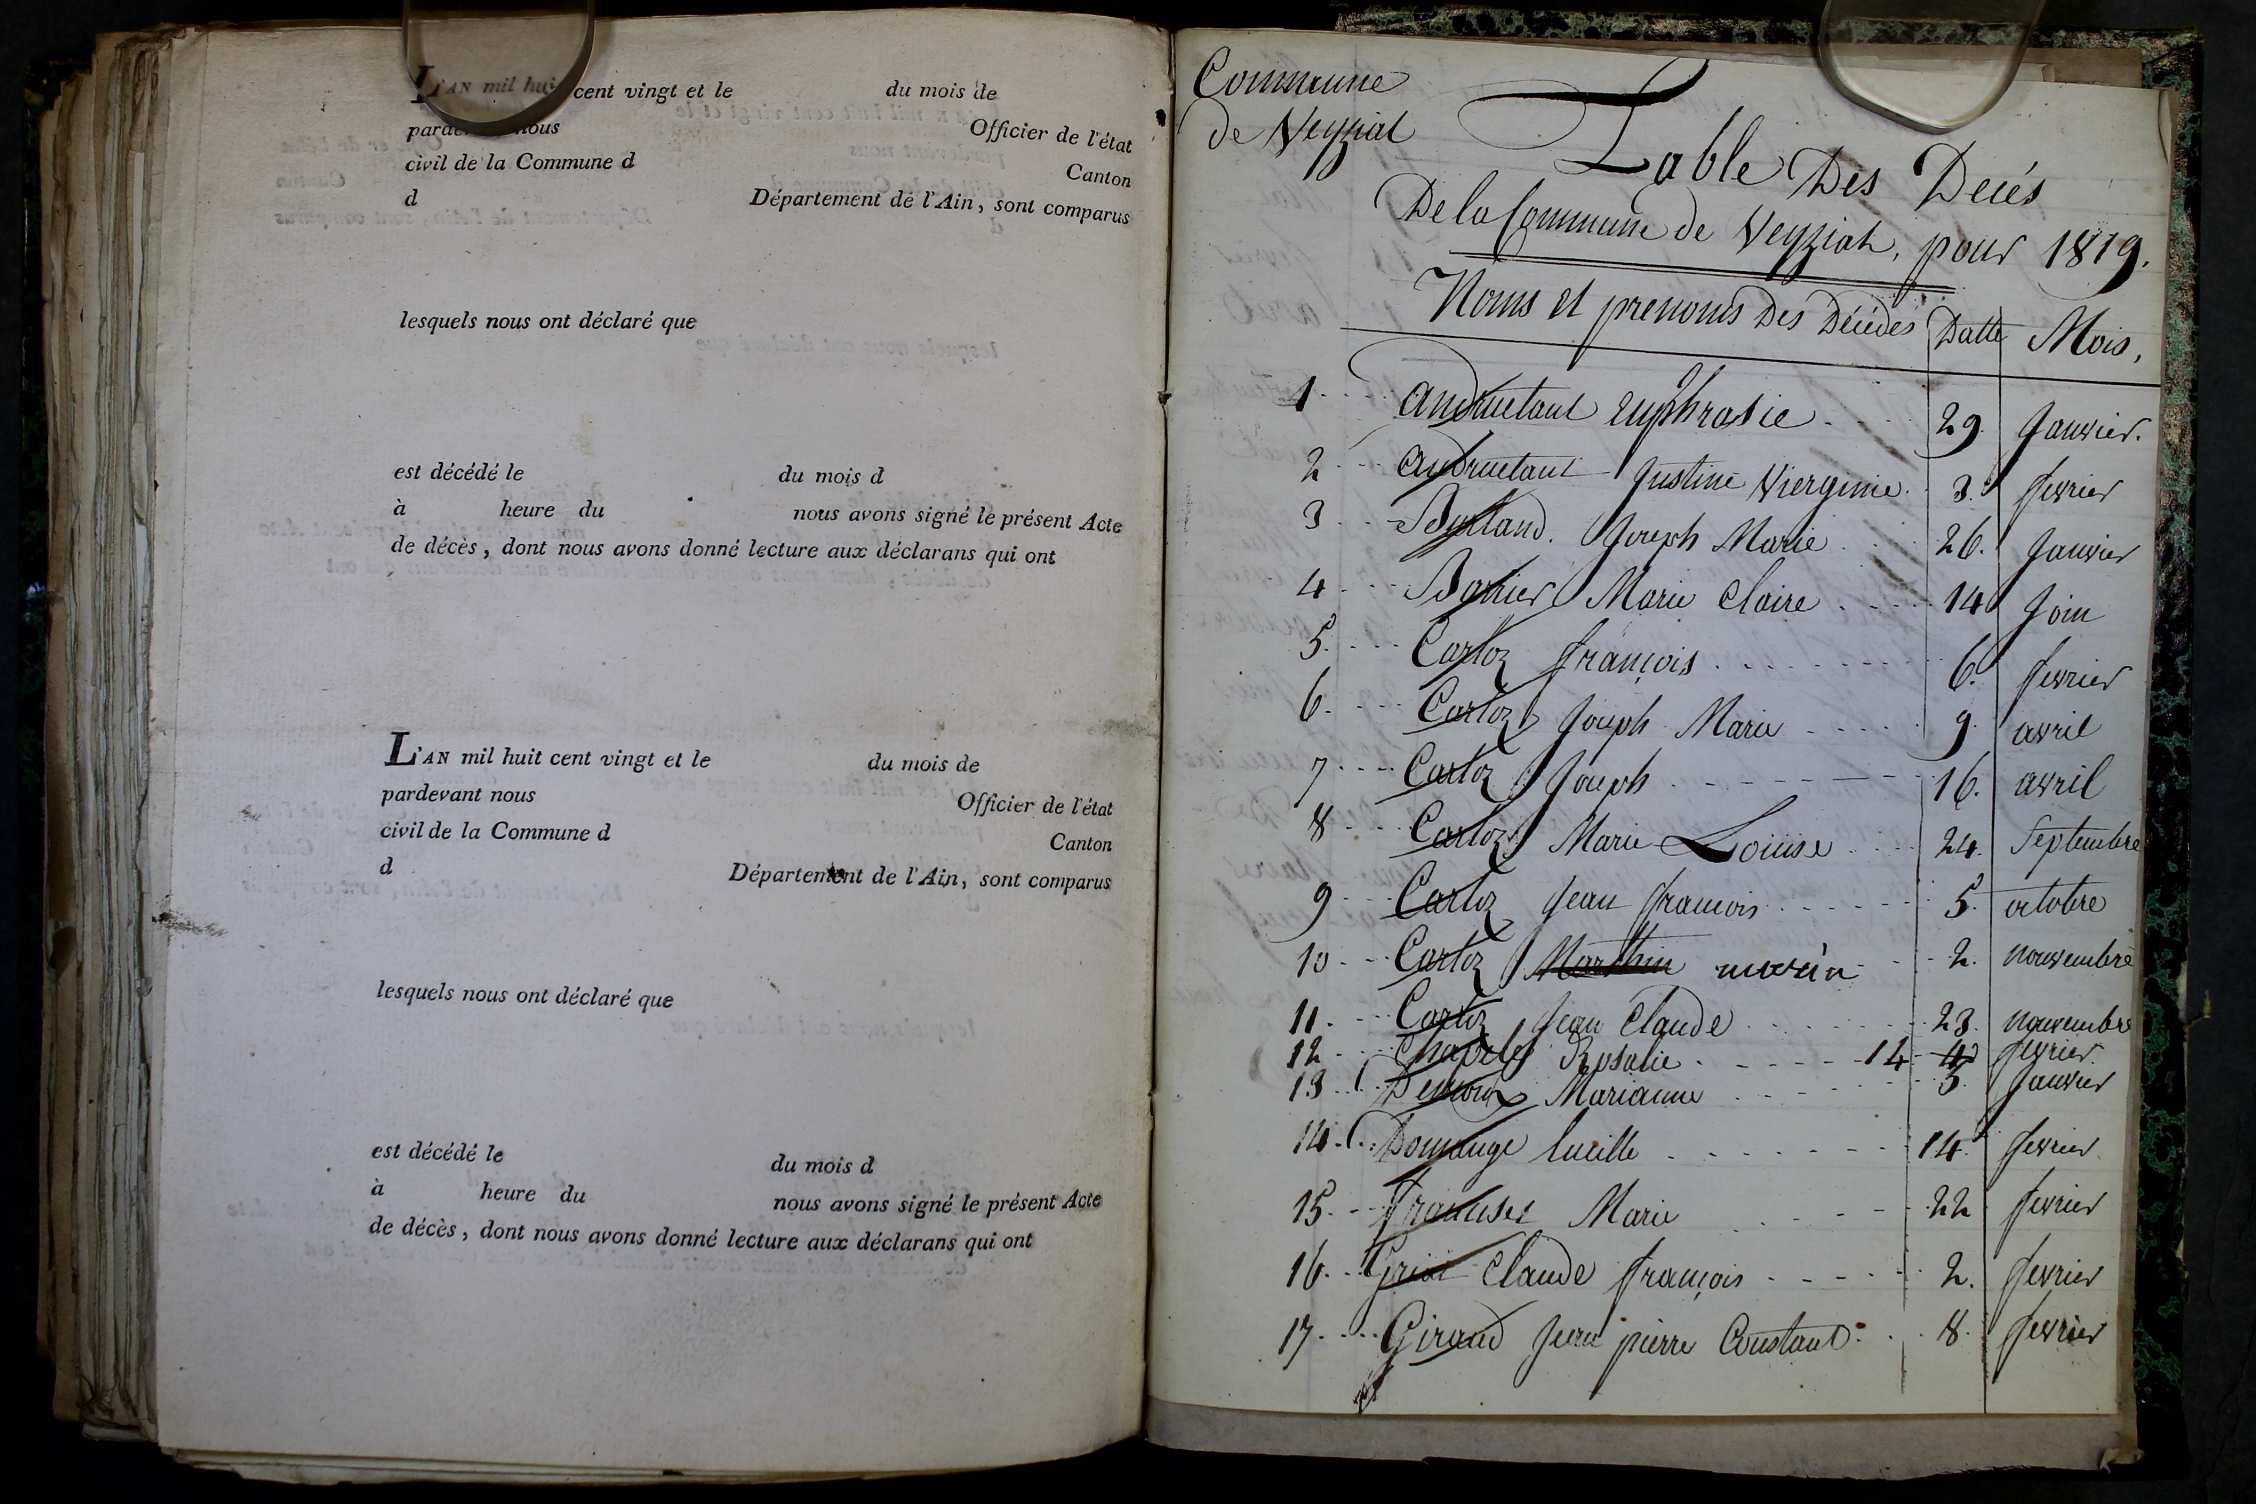 L'AN mil huit cent vingt et le du mois de
pardevant nous Officier de l'état
civil de la Commune d Canton
d Département de l'Ain, sont comparus
lesquels nous ont déclaré que
est décédé le du mois d
à heure du nous avons signé le présent Acte
de décès, dont nous avons donné lecture aux déclarans qui ont
L'AN mil huit cent vingt et le du mois de
pardevant nous Officier de l'état
civil de la Commune d Canton
d Département de l'Ain, sont comparus
lesquels nous ont déclaré que
est décédé le du mois d
à heure du nous avons signé le présent Acte
de décès, dont nous avons donné lecture aux déclarans qui ont
Commune
de Veyziat
Table Des Decés
De la Commune de Veyziat, pour 1819.
Noms et prenoms Des Décédés Datte Mois,
1 Andruetant euphrasie 29 Janvier.
2 Andruetant Justine Vierginie 3. fevrier
3 Joseph Marie 26. Janvier
4 Marie Claire 14 Join
5. Cartoz françois 6. fevrier
6. Cartoz Joseph Marie 9. avril
7 Cartoz Joseph 16. avril
8 Cartoz Marie Louise 24. Septembre
9 Cartoz Jean françois 5. octobre
10 Cartoz Marthin 2. nouvembre
11. Cartoz Jean Claude 23. nouvembre
12 Rosalie 14 4 fevrier
13 Marianne 5. Janvier
14. Domange lucille 14. fevrier
15. Marie 22 fevrier
16. Claude françois 2. fevrier
17. Giraud Jean pierre Constant 8. fevrier